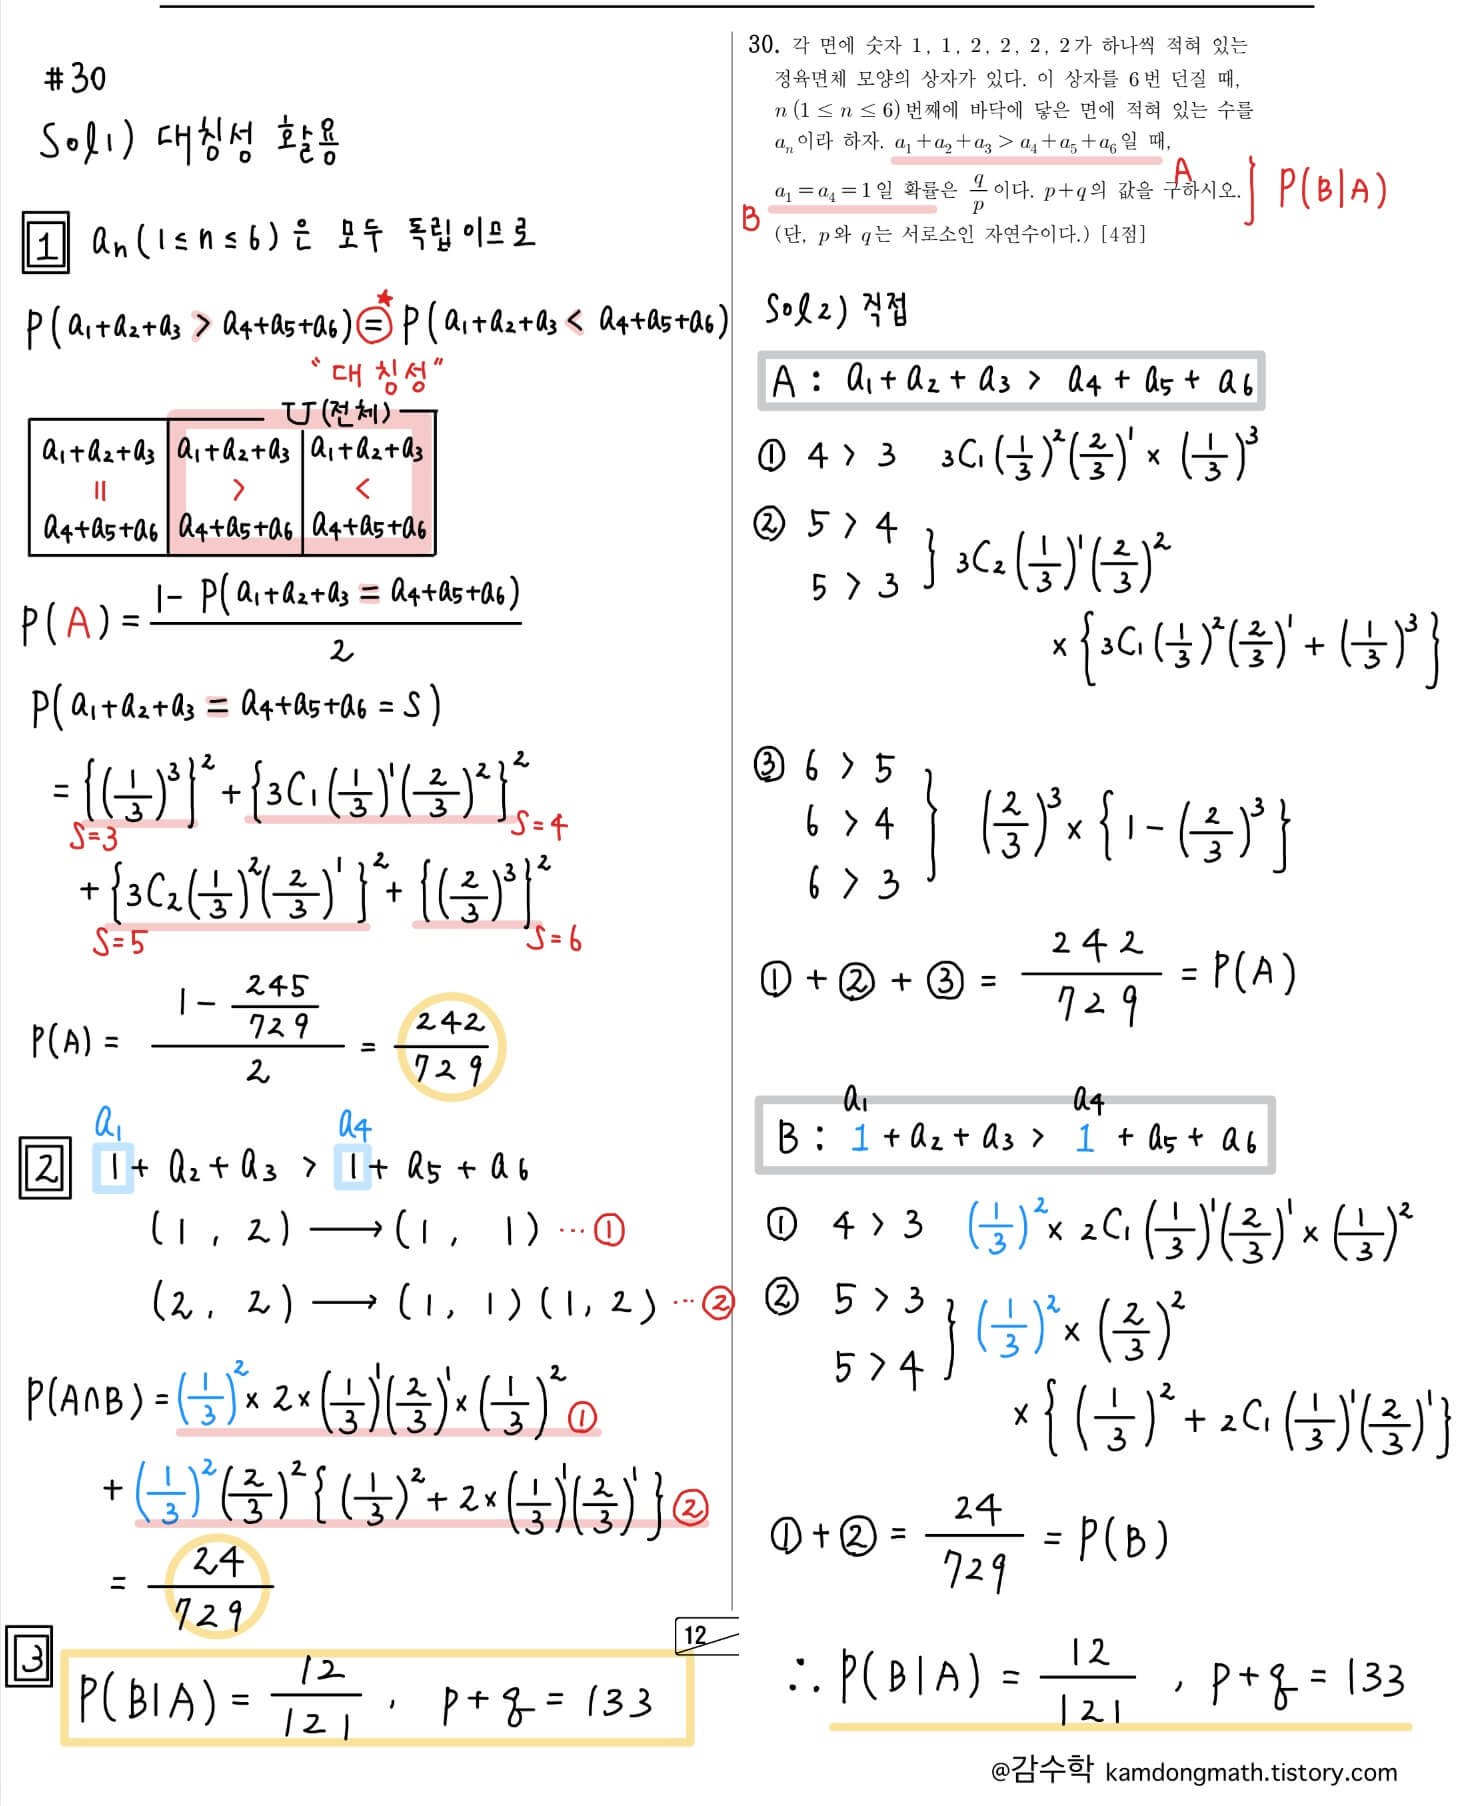 #30
Sol1) 대칭성 활용
1 aₙ(1≤n≤6)은 모두 독립이므로
P(a₁+a₂+a₃ > a₄+a₅+a₆) = P(a₁+a₂+a₃ < a₄+a₅+a₆)
★
"대칭성"
U(전체)
a₁+a₂+a₃ a₁+a₂+a₃ a₁+a₂+a₃
= > <
a₄+a₅+a₆ a₄+a₅+a₆ a₄+a₅+a₆
P(A) = (1 - P(a₁+a₂+a₃ = a₄+a₅+a₆))/2
P(a₁+a₂+a₃ = a₄+a₅+a₆ = S)
= {(1/3)³}² + {₃C₁(1/3)¹(2/3)²}²
S=3 S=4
+ {₃C₂(1/3)²(2/3)¹}² + {(2/3)³}²
S=5 S=6
P(A) = (1 - 245/729)/2 = 242/729
a₁ a₄
2 1 + a₂ + a₃ > 1 + a₅ + a₆
(1, 2) → (1, 1) ⋯①
(2, 2) → (1, 1)(1, 2) ⋯②
P(A∩B) = (1/3)² × 2 × (1/3)¹(2/3)¹ × (1/3)² ①
+ (1/3)²(2/3)²{(1/3)² + 2×(1/3)¹(2/3)¹} ②
= 24/729
3 P(B|A) = 12/121 , p+q = 133
12
30. 각 면에 숫자 1, 1, 2, 2, 2, 2가 하나씩 적혀 있는
정육면체 모양의 상자가 있다. 이 상자를 6번 던질 때,
n(1≤n≤6)번째에 바닥에 닿은 면에 적혀 있는 수를
aₙ이라 하자. a₁+a₂+a₃ > a₄+a₅+a₆일 때,
A
a₁=a₄=1일 확률은 q/p이다. p+q의 값을 구하시오. } P(B|A)
B
(단, p와 q는 서로소인 자연수이다.) [4점]
Sol2) 직접
A : a₁+a₂+a₃ > a₄+a₅+a₆
① 4 > 3 ₃C₁(1/3)²(2/3)¹ × (1/3)³
② 5 > 4
5 > 3 } ₃C₂(1/3)¹(2/3)²
× {₃C₁(1/3)²(2/3)¹ + (1/3)³}
③ 6 > 5
6 > 4 } (2/3)³ × {1 - (2/3)³}
6 > 3
① + ② + ③ = 242/729 = P(A)
a₁ a₄
B : 1 + a₂ + a₃ > 1 + a₅ + a₆
① 4 > 3 (1/3)² × ₂C₁(1/3)¹(2/3)¹ × (1/3)²
② 5 > 3
5 > 4 } (1/3)² × (2/3)²
× {(1/3)² + ₂C₁(1/3)¹(2/3)¹}
① + ② = 24/729 = P(B)
∴ P(B|A) = 12/121 , p+q = 133
@감수학 kamdongmath.tistory.com